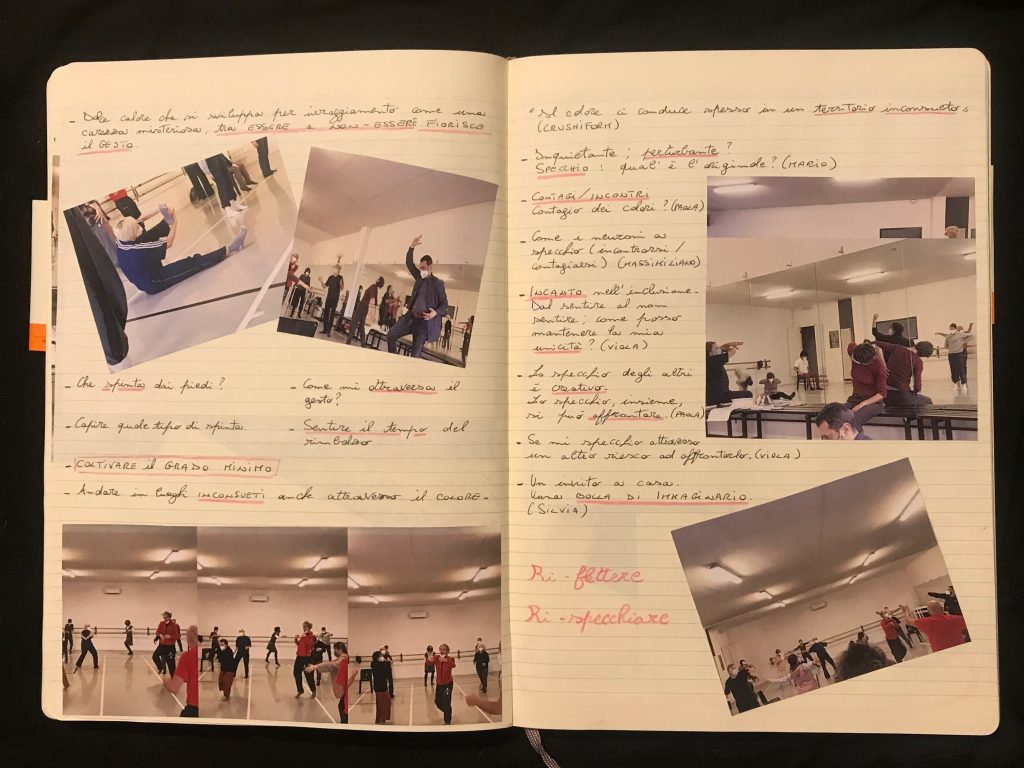 - Dolce calore che si sviluppa per irraggiamento come una
carezza misteriosa, tra ESSERE e NON-ESSERE FIORISCE
il GESTO.
- Che spinta dai piedi?
- Capire quale tipo di spinta
- Come mi attraversa il
gesto?
- Sentire il tempo del
rimbalzo
- COLTIVARE il GRADO MINIMO
- Andare in luoghi INCONSUETI anche attraverso il COLORE-
"Il colore ci conduce spesso in un territorio inconsueto"
(CRUSHIFORM)
- Inquietante; perturbante?
SPECCHIO: qual'è l'originale? (MARIO)
- CONTAGI/INCONTRI
Contagio dei colori? (PAOLA)
- Come i neuroni a
specchio (incontrarsi/
contagiarsi) (MASSIMILIANO)
- INCANTO nell'inclusione.
Dal sentire al non
sentire; come posso
mantenere la mia
unicità? (VIOLA)
- Lo specchio degli altri
è creativo.
Lo specchio, insieme,
si può affrontare. (PAOLA)
- Se mi specchio attraverso
un altro riesco ad affrontarlo. (VIOLA)
- Un invito a casa.
Una BOLLA DI IMMAGINARIO.
(SILVIA)
Ri-flettere
Ri-specchiare